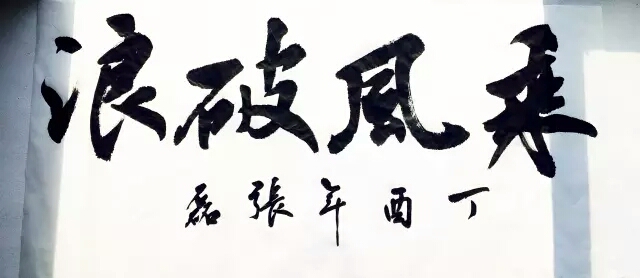 乘風破浪
丁酉年張磊